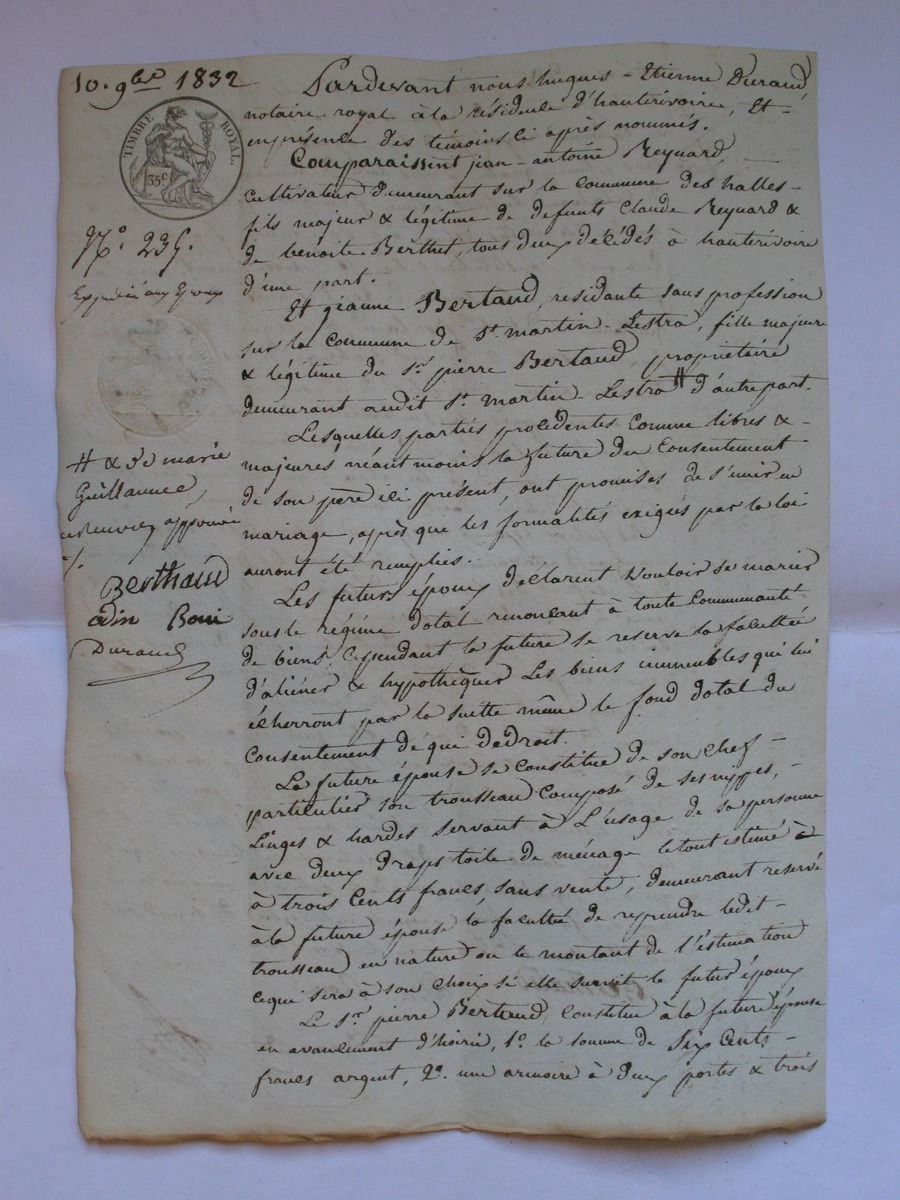 10. 9bre 1832
TIMBRE ROYAL.
35c
N° 235.
Expédié aux Epoux
# & de marie
Guillaume,
renvoi approuvé
Berthaud
Durand
Pardevant nous hugues - Etienne Durand,
notaire royal à la résidence d'hauterivoire, Et -
enprésence des témoins ci après nommés.
Comparaissent jean - antoine Reynard,
cultivateur demeurant sur la commune des halles -
fils majeur & légitime de defunts Claude Reynard &
de bénoite Berthet, tous deux décédés à hauterivoire
d'une part.
Et jeanne Bertaud, residante sans profession
sur la commune de St. martin - Lestra, fille majeure
& légitime du Sr. pierre Bertaud, propriétaire
demeurant audit St. martin - Lestra # d'autre part.
Lesquelles parties procédentes comme libres & -
majeures néant moins la future du consentement
de son père ici présent, ont promises de s'unir en
mariage, après que les formalités exigés par la loi
auront été remplies.
Les futurs époux déclarent vouloir se marier
sous le régime dotal renoncant à toute communauté
de biens, cependant la future se reserve la facultée
d'aliéner & hypothèquer Les biens immeubles qui lui
écherront par la suitte même le fond dotal du
consentement de qui de droit.
La future épouse se constitue de son chef -
particulier son trousseau composé de ses nippes, -
Linges & hardes servant à L'usage de sa personne
avec deux draps toile de ménage le tout estimé à
à trois cents francs, sans vente, demeurant reservé
à la future épouse la faculté de reprendre ledit -
trousseau en nature ou le montant de l'estimation
ce qui sera à son choix si elle survit le futur époux
Le Sr. pierre Bertaud, constitue à la future épouse
en avancement d'hoirie, 1° la somme de Six Cents -
francs argent, 2° une armoire à deux portes & trois